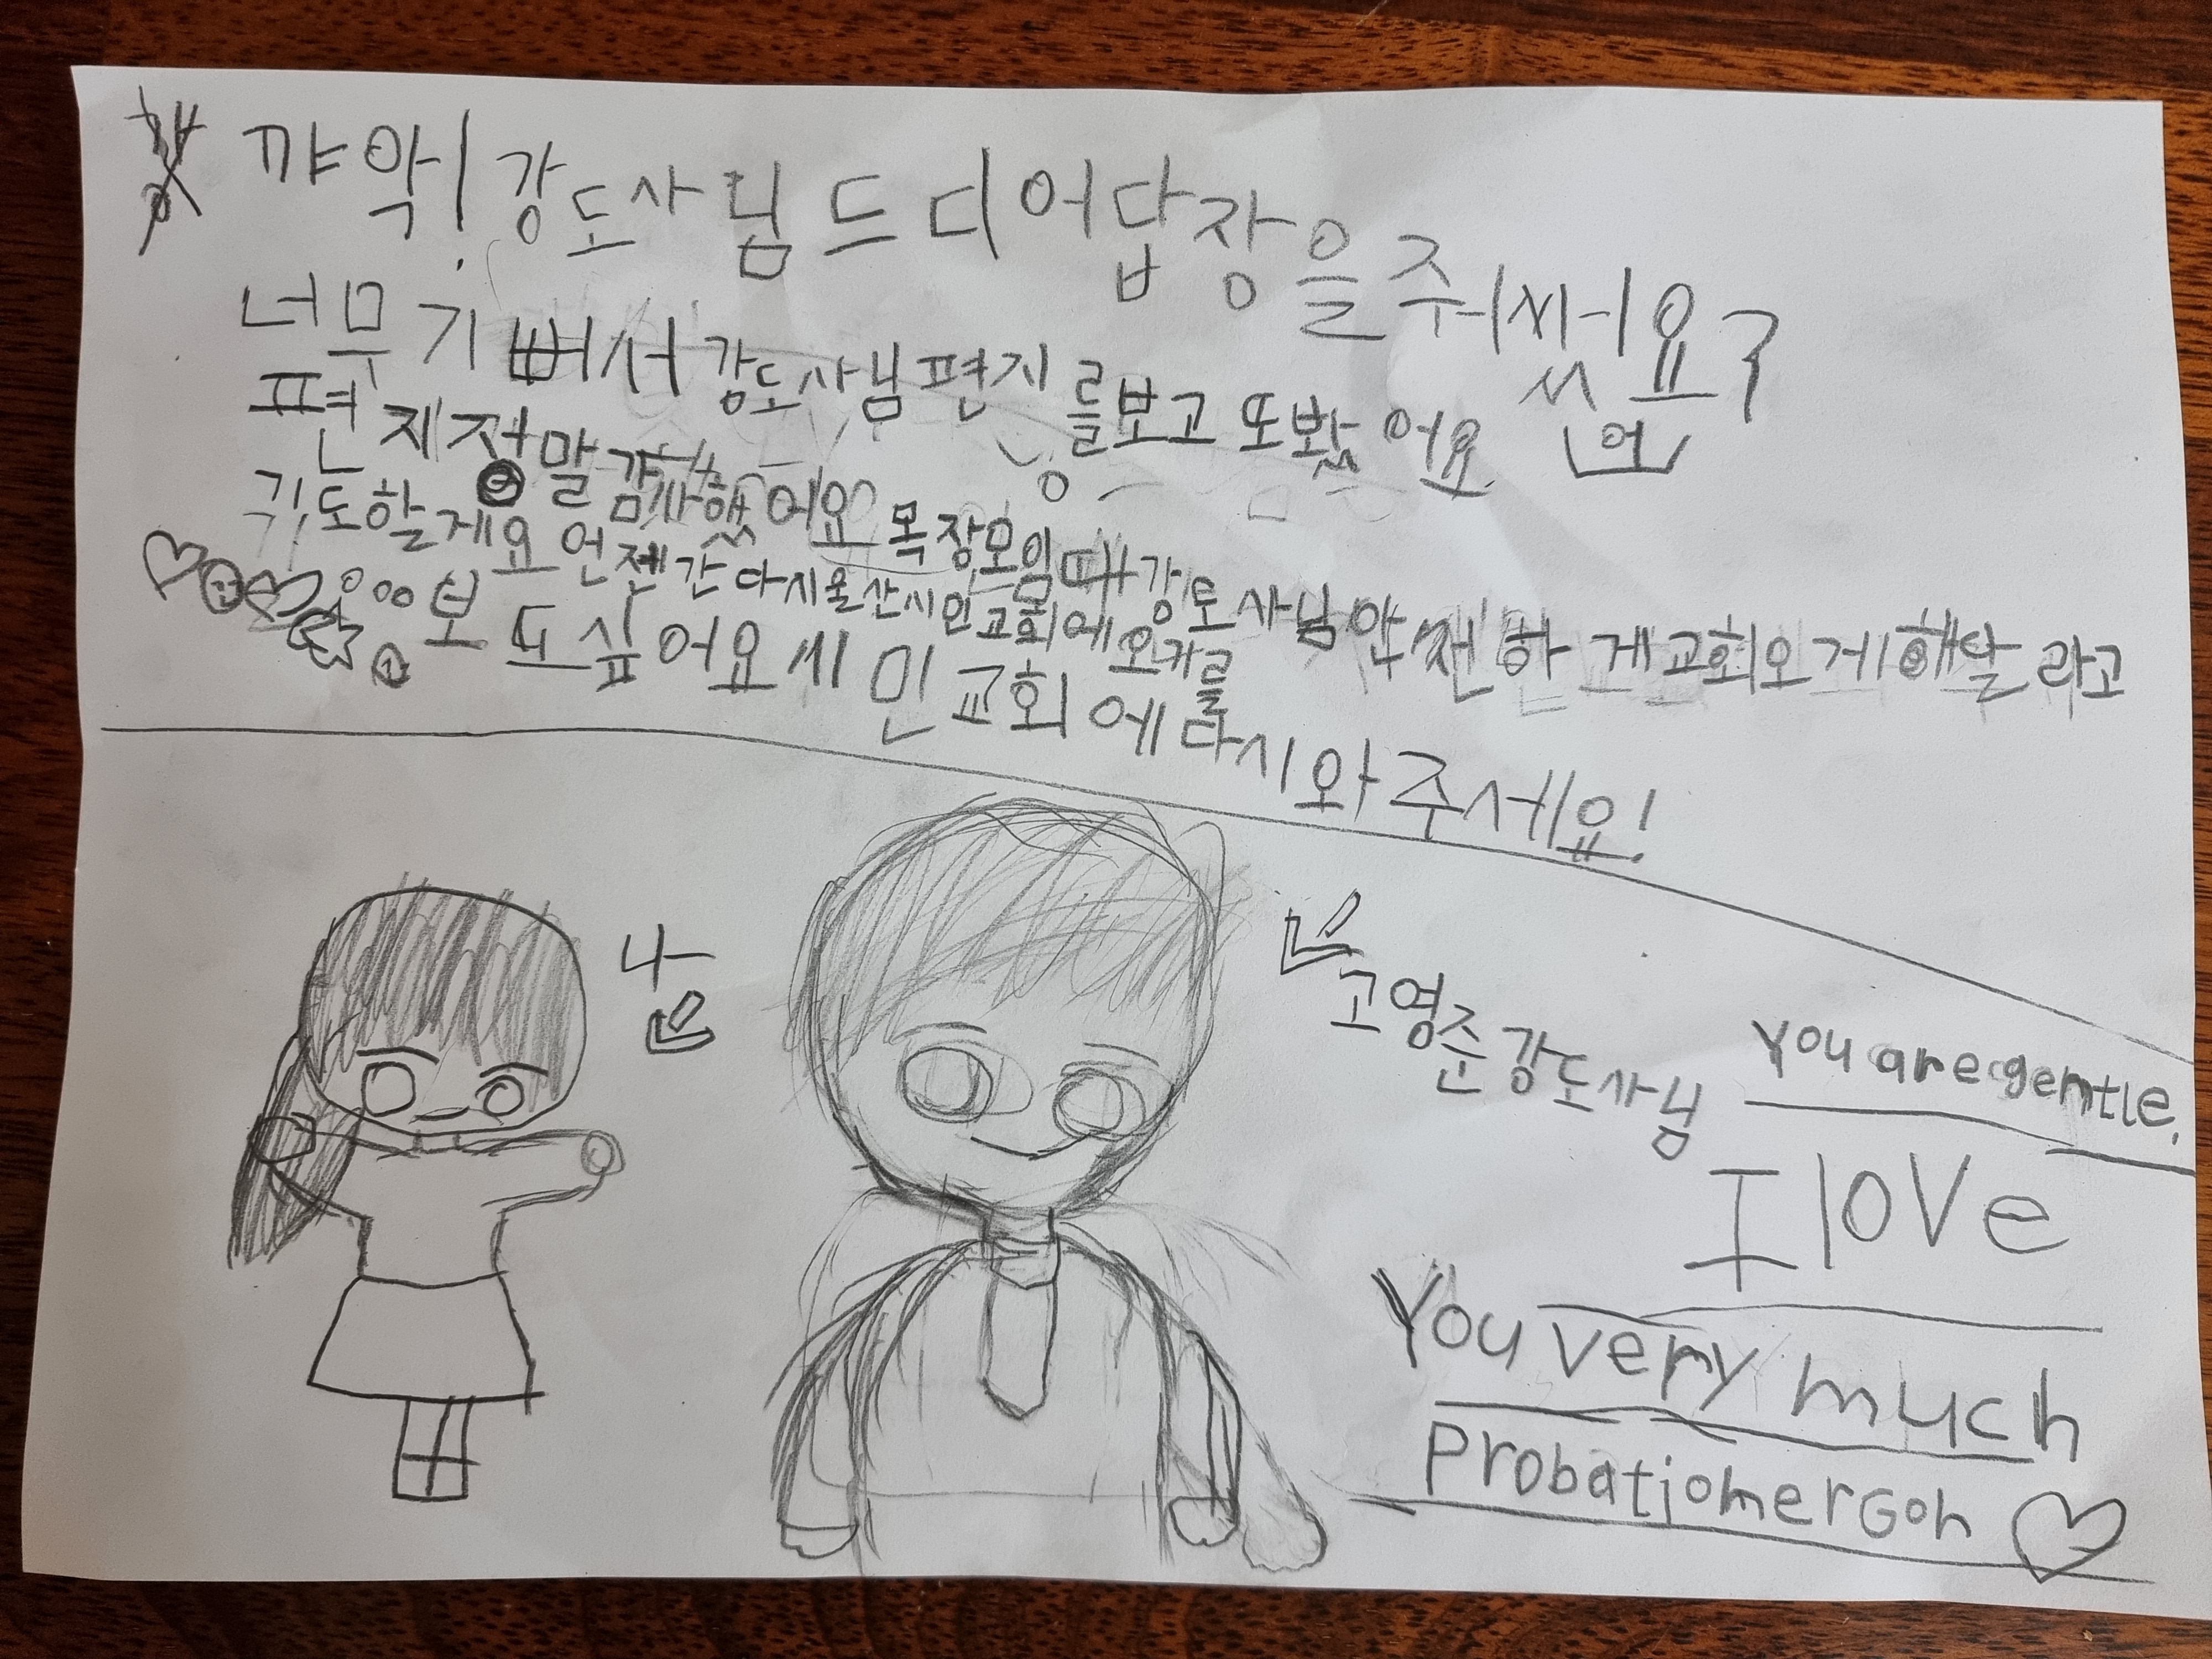 꺄악! 강도사님 드디어 답장을 주워써요?
(었)
너무 기뻐서 강도사님 편지를 보고 또 봤어요
편지 정말 감사했어요 목장모임때 강도사님 안전하게 교회오게 해달라고
기도할게요 언젠간 다시 울산시민교회에 오기를
보도싶어요 시민교회에 다시 와주세요!
나
고영준 강도사님
You are gemtle.
I loVe
You very much
ProbatiomerGoh